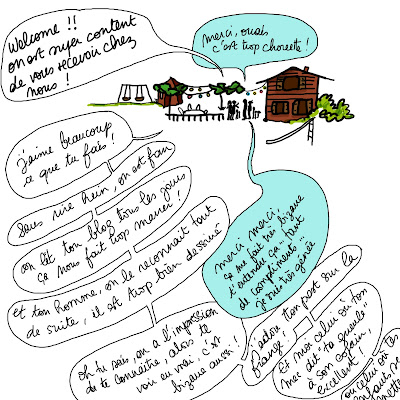 Welcome !!
on est super content
de vous recevoir chez
nous !
merci, ouais
c'est trop chouette !
j'aime beaucoup
ce que tu fais !
sans rire hein, on est fan
on lit ton blog tous les jours
ça nous fait trop marrer !
et ton homme, on le reconnait tout
de suite, il est trop bien dessiné
oh tu sais, on a l'impression
de te connaître, alors te
voir en vrai, c'est
bizarre aussi !
merci, merci,
ça me fait très bizarre
d'entendre ça... tant
de compliments...
je suis très gênée
j'adore ton post sur la
frange !
Et moi celui où ton
mec dit "ta gueule"
à son copain,
excellent !
ou celui où tes